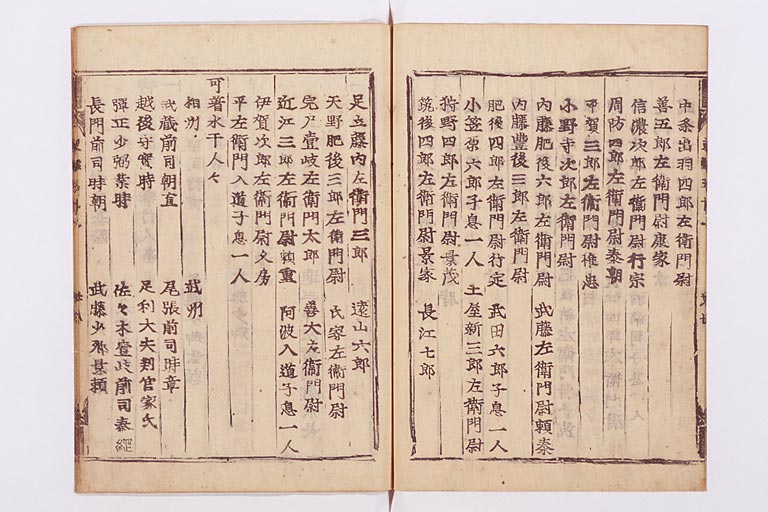 中条出羽四郎左衛門尉
善五郎左衛門尉康家
信濃次郎左衛門尉行宗
周防四郎左衛門尉泰朝
平賀三郎左衛門尉惟忠
小野寺次郎左衛門尉
内藤肥後六郎左衛門尉 武藤左衛門尉頼泰
内藤豊後三郎左衛門尉
肥後四郎左衛門尉行定 武田六郎子息一人
小笠原六郎子息一人 土屋新三郎左衛門尉
狩野四郎左衛門尉景茂
筑後四郎左衛門尉景家 長江七郎
足立藤内左衛門三郎 遠山六郎
天野肥後三郎左衛門尉 氏家左衛門尉
宍戸壹岐左衛門太郎 善太左衛門尉
近江三郎左衛門尉頼重 阿波入道子息一人
伊賀次郎左衛門尉光房
平左衛門入道子息一人
可着水干人々
相州 武州
武蔵前司朝直 尾張前司時章
越後守實時 足利大夫判官家氏
彈正少弼業時 佐々木壹岐前司泰經
長門前司時朝 武藤少卿景頼